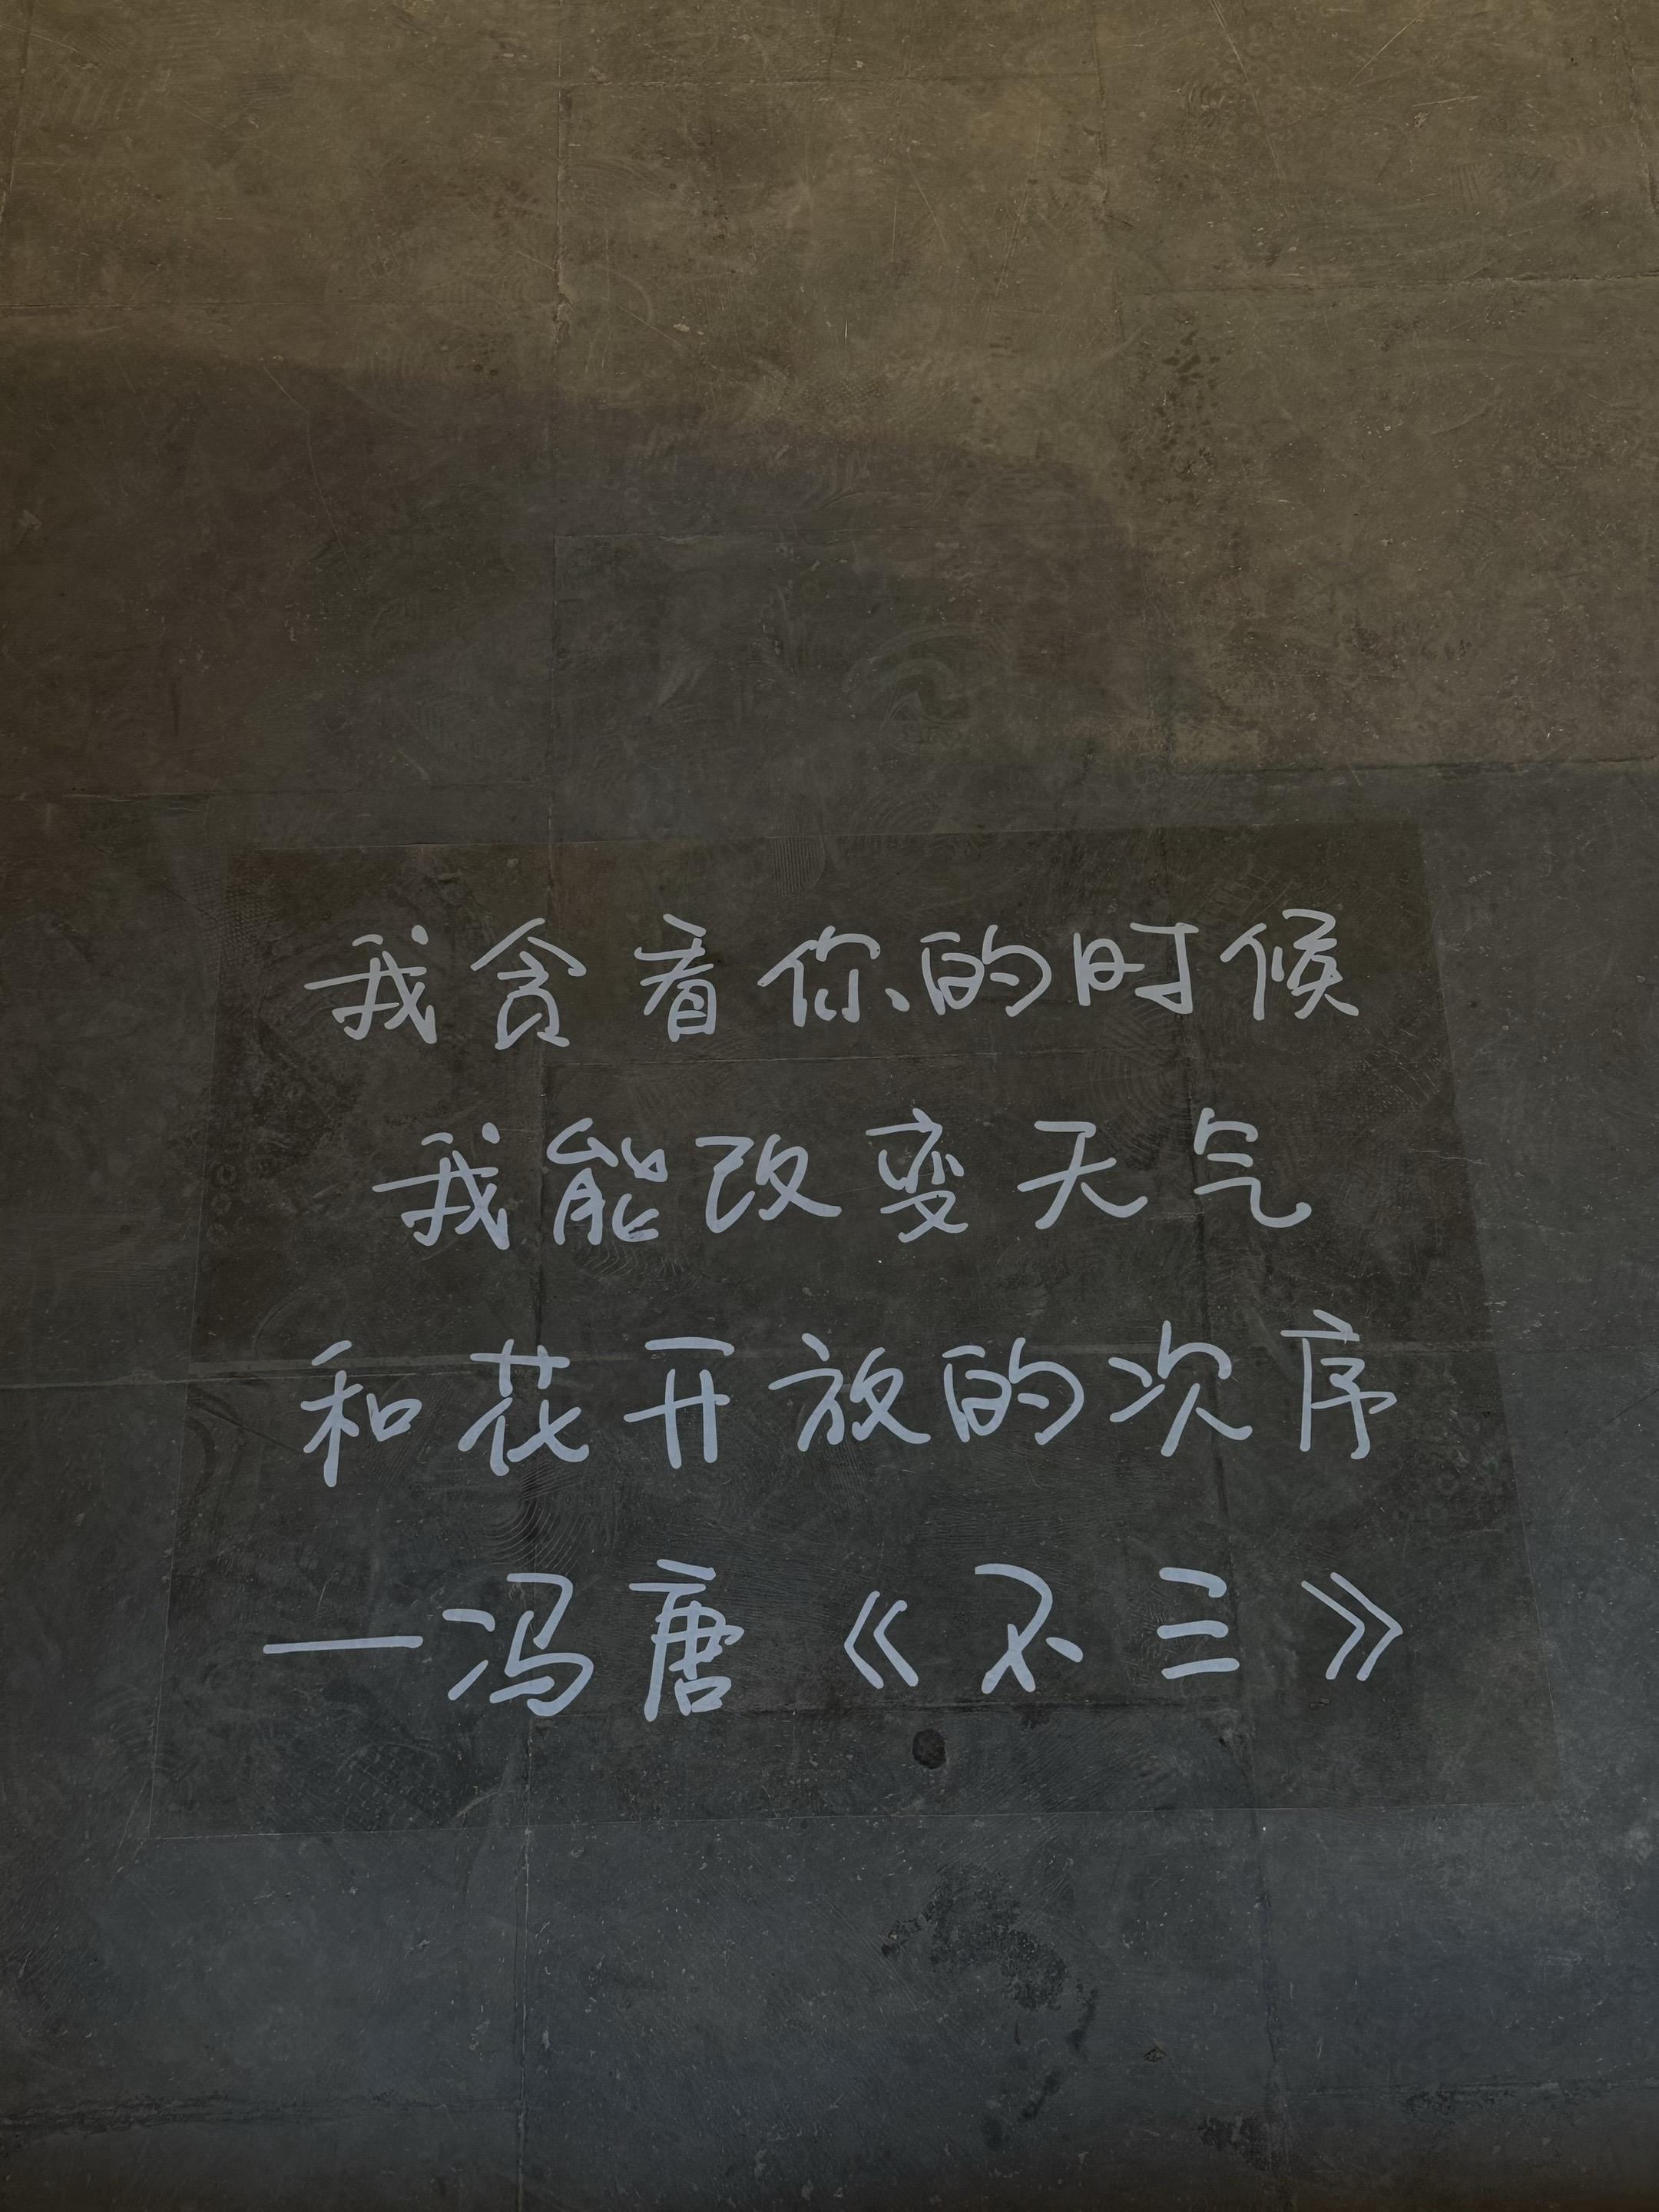 我贪看你的时候
我能改变天气
和花开放的次序
—冯唐《不三》